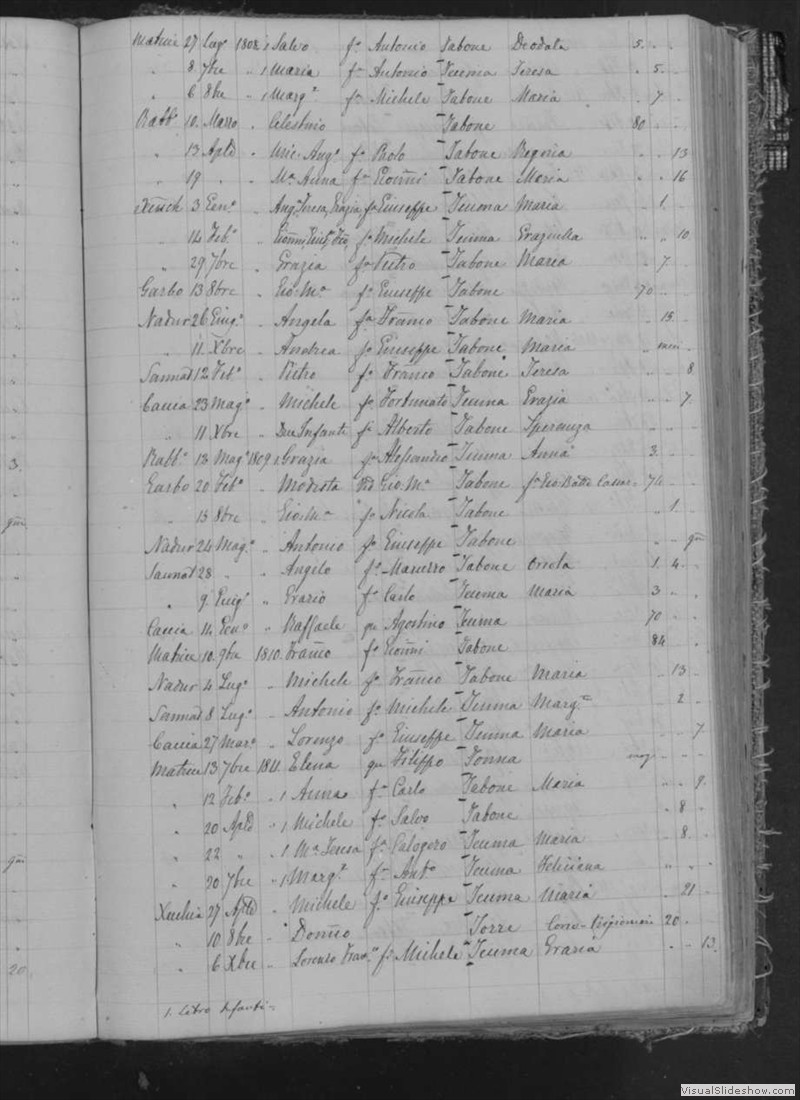 3.
20
Matrice 27 Lug.º 1808 1 Salvo fº Antonio Tabone Deodata 5
" 8 7bre " 1 Maria fª Antonio Teuma Teresa 5
" 6 8bre " 1 Marg.ª fª Michele Tabone Maria 7
Rabbº 10 Marzo " Celestino Tabone 80
" 13 Aple " Mic. Angº fº Paolo Tabone Regina 13
" 19 " " Mª Anna fª Gioñni Tabone Maria 16
3 Gen.º " Ang.ª Teresa, Grazia fª Giuseppe Teuma Maria 1
" 14 Feb.º " fº Michele Teuma Graziulla 10
" 29 7bre " Grazia fª Pietro Tabone Maria 7
Garbo 13 8bre " Gio: Mª fº Giuseppe Tabone 70
Nadur 26 Giug.º " Angela fª Frañco Tabone Maria 18
" 11 Xbre " Andrea fº Giuseppe Tabone Maria
Sannat 12 Feb.º " Pietro fº Franco Tabone Teresa 8
Caccia 23 Mag.º " Michele fº Fortunato Teuma Grazia 7
" 11 Xbre " Due Infanti fi Alberto Tabone Speranza
Rabbº 13 Mag.º 1809 1 Grazia fª Alessandro Teuma Anna 3
Garbo 20 Feb.º " Modesta Vid Gio: Mª Tabone fª Gio Batta 74
" 13 8bre " Gio: Mª fº Nicola Tabone 1
Nadur 24 Mag.º " Antonio fº Giuseppe Tabone gni
Sannat 28 " " Angelo fº Tabone Orsola 1 4
" 9 Giug.º " Grazio fº Carlo Teuma Maria 3
Caccia 14 Gen.º " Raffaele qu Agostino Teuma 70
Matrice 10 9bre 1810 Frañco fº Gioñni Tabone 84
Nadur 4 Lug.º " Michele fº Frañco Tabone Maria 13
Sannat 8 Lug.º " Antonio fº Michele Teuma Marg.ª 2
Caccia 27 Mar.º " Lorenzo fº Giuseppe Teuma Maria 7
Matrice 13 7bre 1811 Elena qu Filippo Tonna
" 12 Feb.º " 1 Anna fª Carlo Tabone Maria 9
" 20 Aple " 1 Michele fº Salvo Tabone 8
" 22 " " 1 Mª Teresa fª Calogero Teuma Maria 8
" 20 7bre " 1 Marg.ª fª Antº Teuma Feliciana
27 Aple " Michele fº Giuseppe Teuma Maria 21
" 10 8bre " Doñico Torre 20
" 6 Xbre " Lorenzo fº Michele Teuma Grazia 13
1. Libro Infanti
VisualSlideshow.com